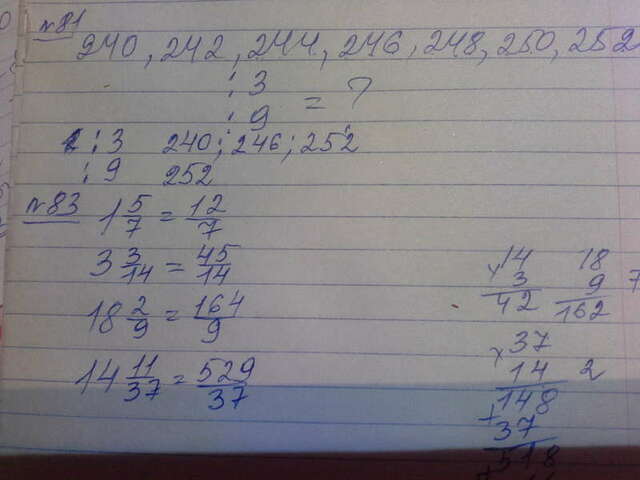 №81
240, 242, 244, 246, 248, 250, 252
: 3
: 9 = ?
: 3 240; 246; 252
: 9 252
№83
1 5/7 = 12/7
3 3/14 = 45/14
18 2/9 = 164/9
14 11/37 = 529/37
14 18
× 3 9 7
42 162
× 37
14 2
+ 148
37
+ 518